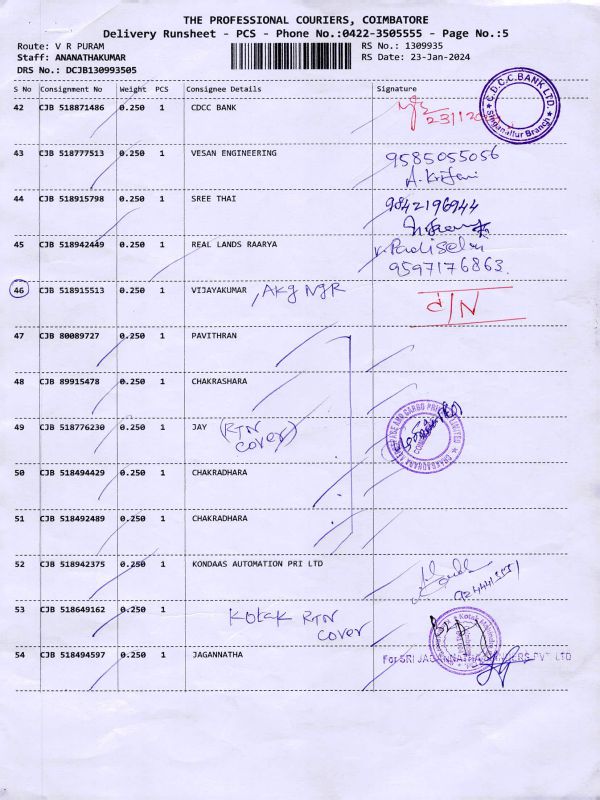 THE PROFESSIONAL COURIERS, COIMBATORE
Delivery Runsheet - PCS - Phone No.:0422-3505555 - Page No.:5
Route: V R PURAM RS No.: 1309935
Staff: ANANATHAKUMAR RS Date: 23-Jan-2024
DRS No.: DCJB130993505
S No Consignment No Weight PCS Consignee Details Signature
42 CJB 518871486 0.250 1 CDCC BANK
C.D.C.C.BANK LTD.
43 CJB 518777513 0.250 1 VESAN ENGINEERING 9585055056
44 CJB 518915798 0.250 1 SREE THAI 9842196944
45 CJB 518942449 0.250 1 REAL LANDS RAARYA
9597176863.
46 CJB 518915513 0.250 1 VIJAYAKUMAR , AKG NGR
47 CJB 80089727 0.250 1 PAVITHRAN
48 CJB 89915478 0.250 1 CHAKRASHARA
49 CJB 518776230 0.250 1 JAY (RTN
cover)
50 CJB 518494429 0.250 1 CHAKRADHARA
51 CJB 518492489 0.250 1 CHAKRADHARA
52 CJB 518942375 0.250 1 KONDAAS AUTOMATION PRI LTD
53 CJB 518649162 0.250 1 Kotak RTN
cover
54 CJB 518494597 0.250 1 JAGANNATHA